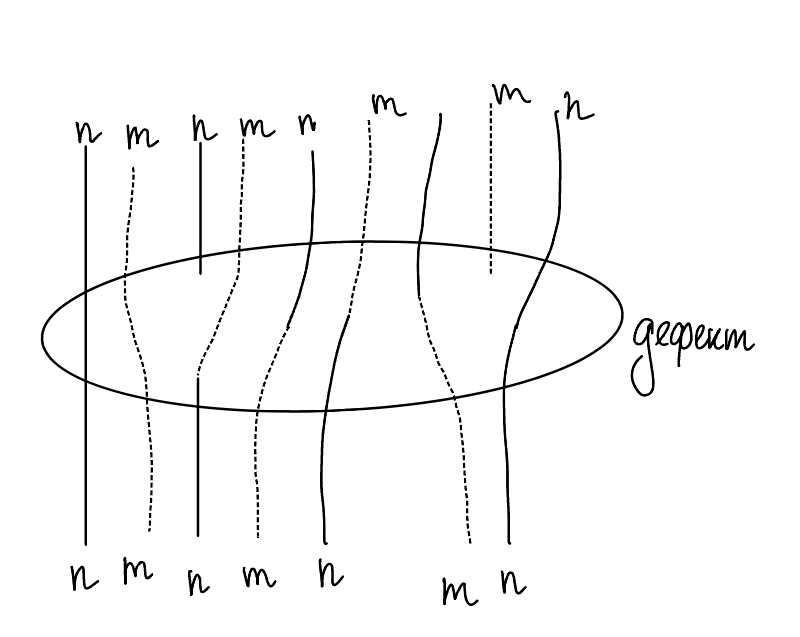 n m n m n m m n
дефект
n m n m n m n